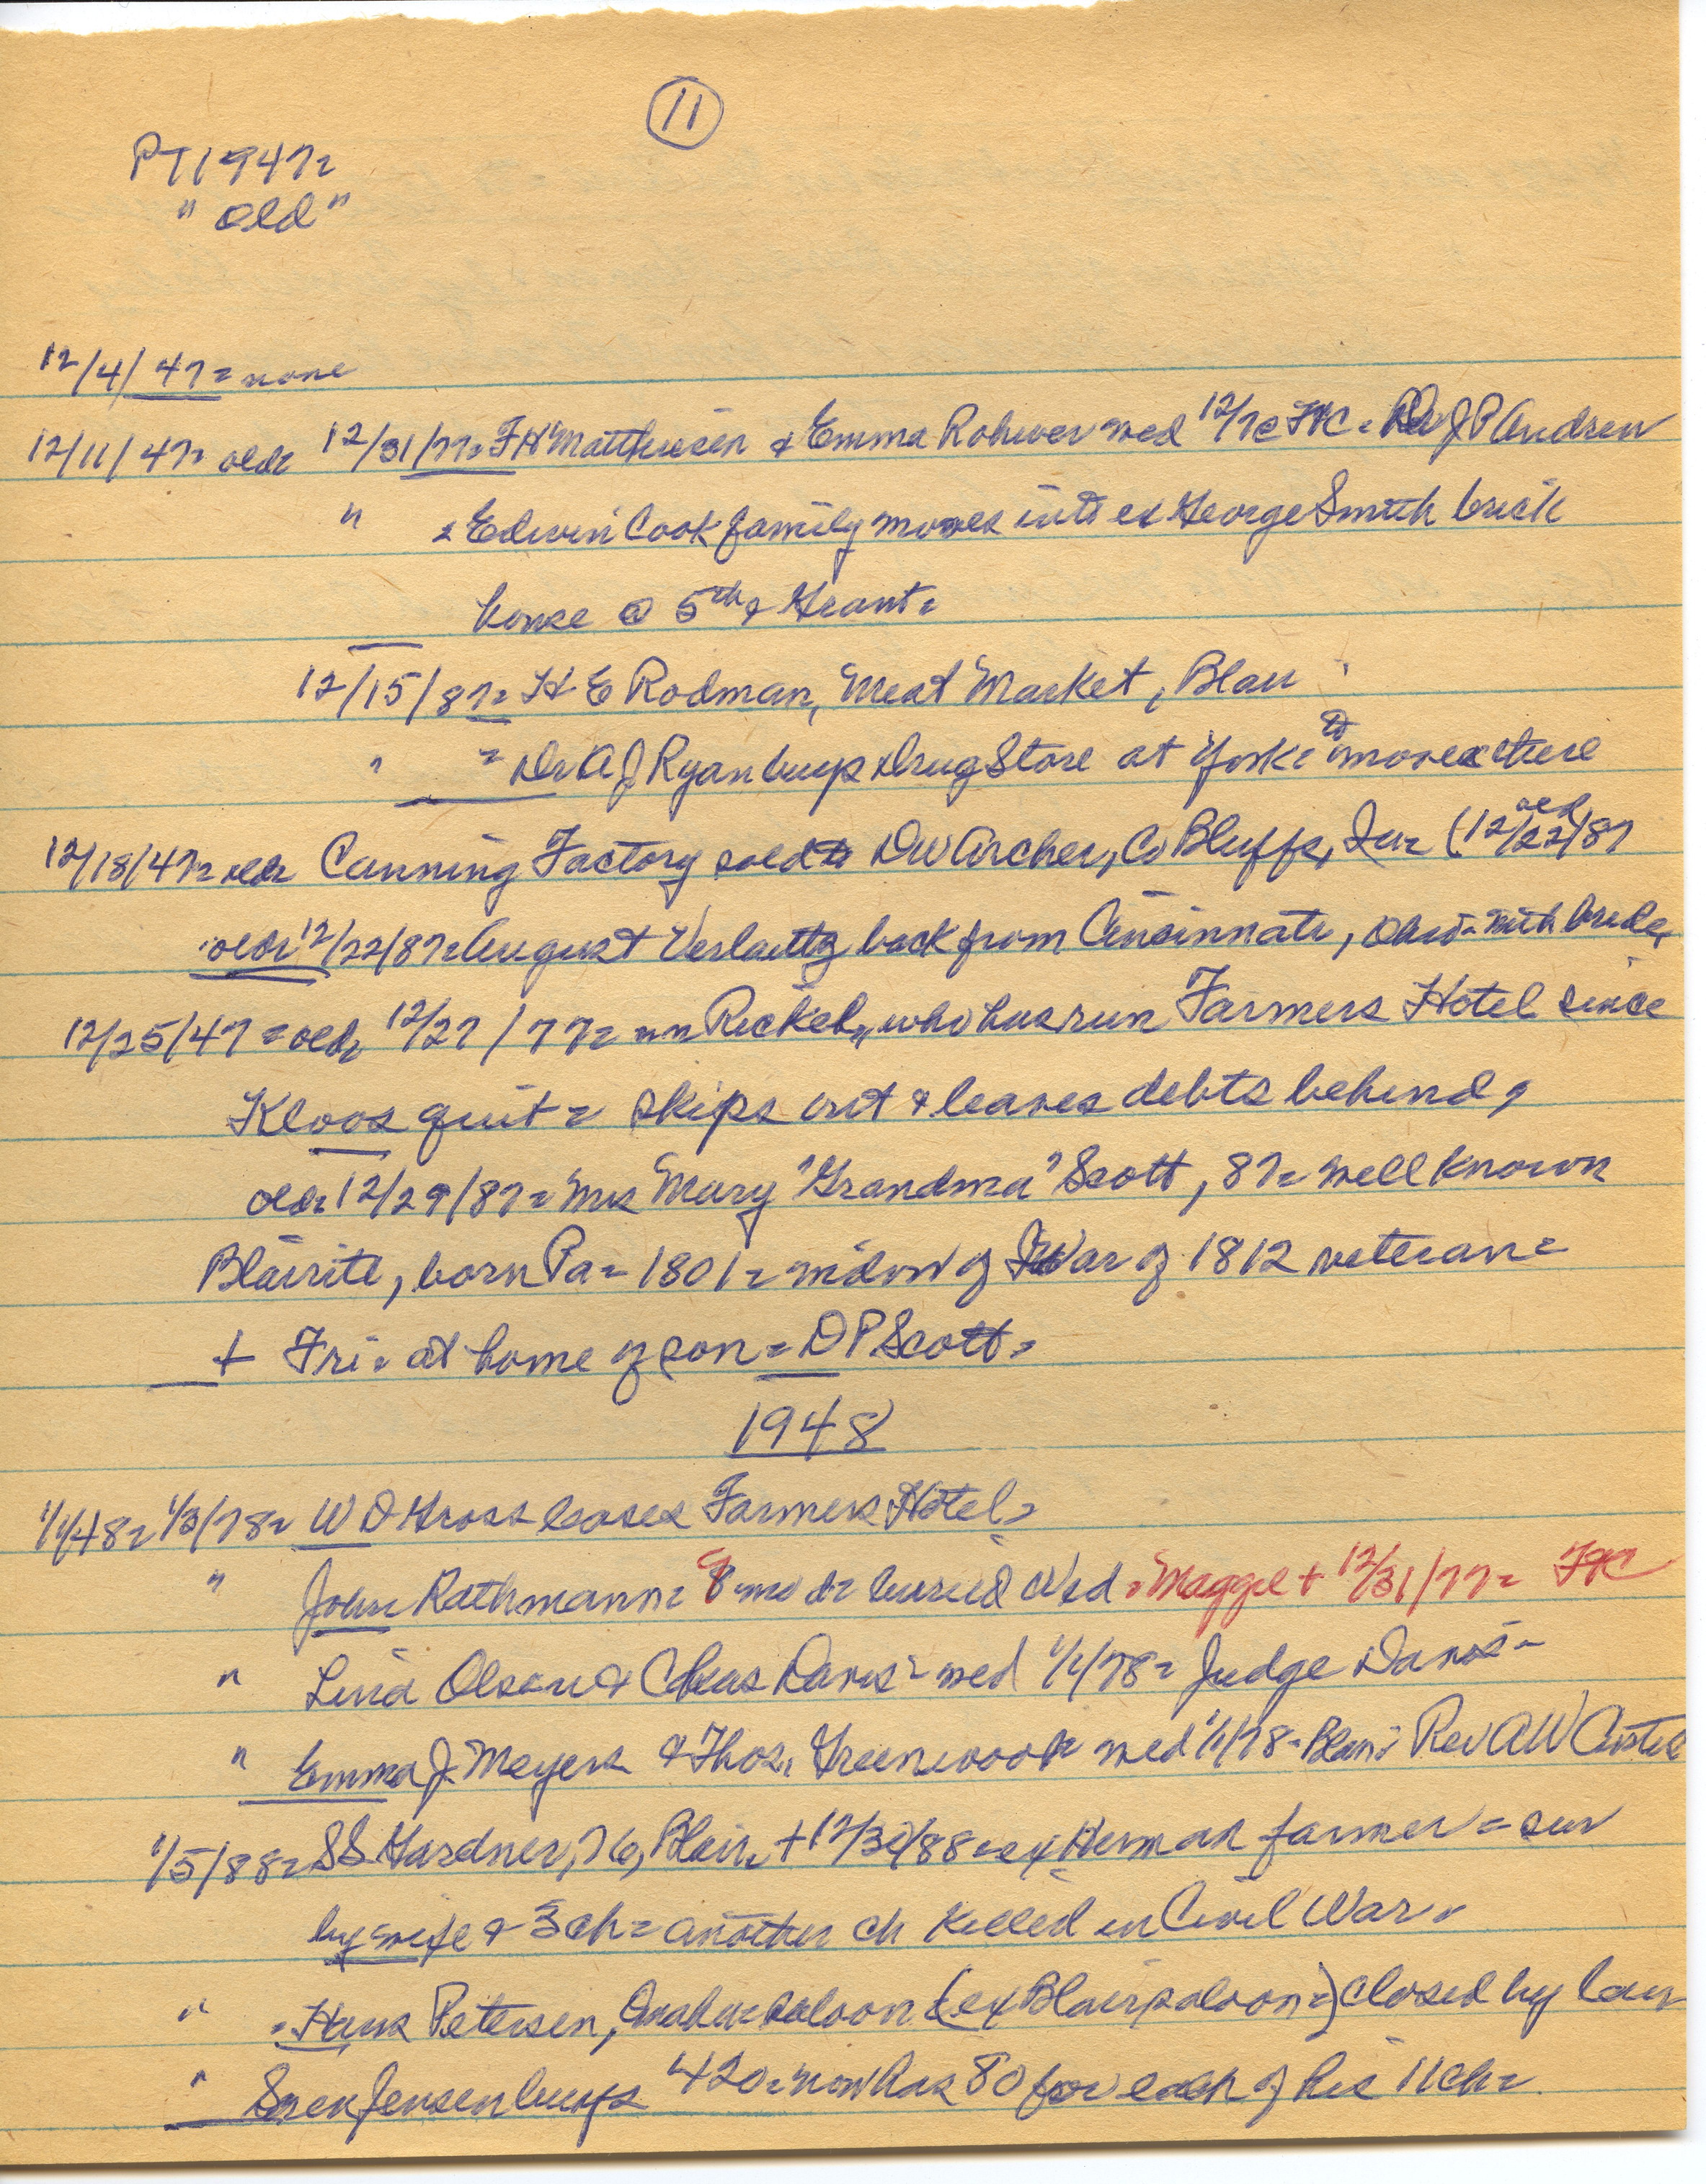 11
PT 1947=
"old"
12/4/47= none
12/11/47= old= 12/31/77= FH Matthiesen & Emma Rohwer wed 12/ FC = JP Andrew
" = Edwin Cook family moves into ex George Smith brick
house @ 5th & Grant=
12/15/87= H E Rodman, Meat Market, Blair
" = Dr A J Ryan buys Drug Store at York= to move there
12/18/47= old= Canning Factory sold to DW Archer, Co Bluffs, Ia= (old 12/22/87
old= 12/22/87= August back from Cincinnati, Ohio= with bride=
12/25/47= old= 12/27/77= nn Rickel, who has run Farmers Hotel since
Kloos quit= skips out & leaves debts behind=
old= 12/29/87= Mrs Mary "Grandma" Scott, 87= well known
Blairite, born Pa= 1801= widow of War of 1812 veteran=
+ Fri= at home of son= D P Scott=
1948
1/1/48= 1/3/78= W D Gross leases Farmers Hotel=
" John Rathmann= 8 mo d= buried Wed= Maggie + 12/31/77= FC
" Lina Olsen & Chas Davis= wed 1/1/78= Judge Davis=
" Emma J. Meyers & Thos. Greenwood= wed 1/1/78= Blair= Rev AW
1/5/88= SS Gardner, 76, Blair + 12/30/88= ex Herman farmer= sur
by wife & 3 ch= another ch killed in Civil War=
" = Hans Petersen, Omaha saloon (ex Blair saloon=) closed by law
" Soren Jensen buys 420= now has 80 for each of his 11 ch=